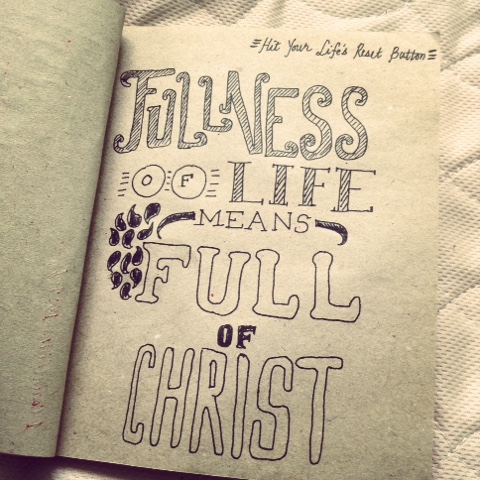 Hit Your Life's Reset Button
FULLNESS
OF LIFE
MEANS
FULL
OF
CHRIST